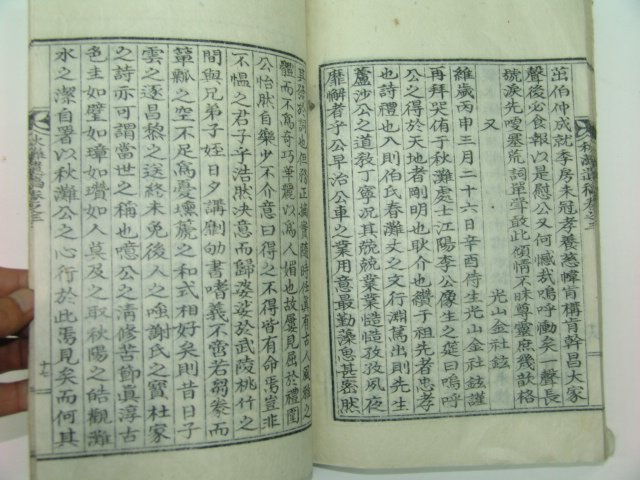 茁伯仲成就季房未冠孝養慈幃肯構肯幹昌大家
聲後必食報以是慰公又何憾哉嗚呼慟矣一聲長
號淚先嗳塞荒詞單雩敢此傾情不昧尊靈庶幾歆格
又
光山金社鉉
維歲丙申三月二十六日辛酉侍生光山金社鉉謹
再拜哭侑于秋灘處士江陽李公像生之筵曰嗚呼
公之得於天地者剛明也耿介也纘于祖先者忠孝
也詩禮也入則伯氏春灘丈之文行淵篤出則先生
蘆沙公之道敎丁寧況其兢兢業業慥慥孜孜夙夜
靡懈者乎公早治公車之業用意最勤藻思甚密然
其發於詞也但務正誠實隨時任眞有古人風雅之
體而不爲奇巧華麗以爲人媚也故屢見屈於禮闈
公怡然自樂少不介意曰得之不得皆有命焉豈非
不慍之君子乎浩然決意而歸婆娑於武陵桃竹之
間與兄弟子姪日夕講劘劬書嗜義不啻若芻豢而
簞瓢之空不足爲憂壎篪之和式相好矣則昔日子
雲之逐昌黎之送終未免後人之嗤謝氏之寶杜家
之詩亦可謂當世之稱也噫公之淸修苦節眞淳古
色圭如璧如璋如瓚如人莫及之取秋陽之皓觀灘
水之潔自署以秋灘公之心行於此焉見矣而何其
秋灘遺稿卷之三
十七